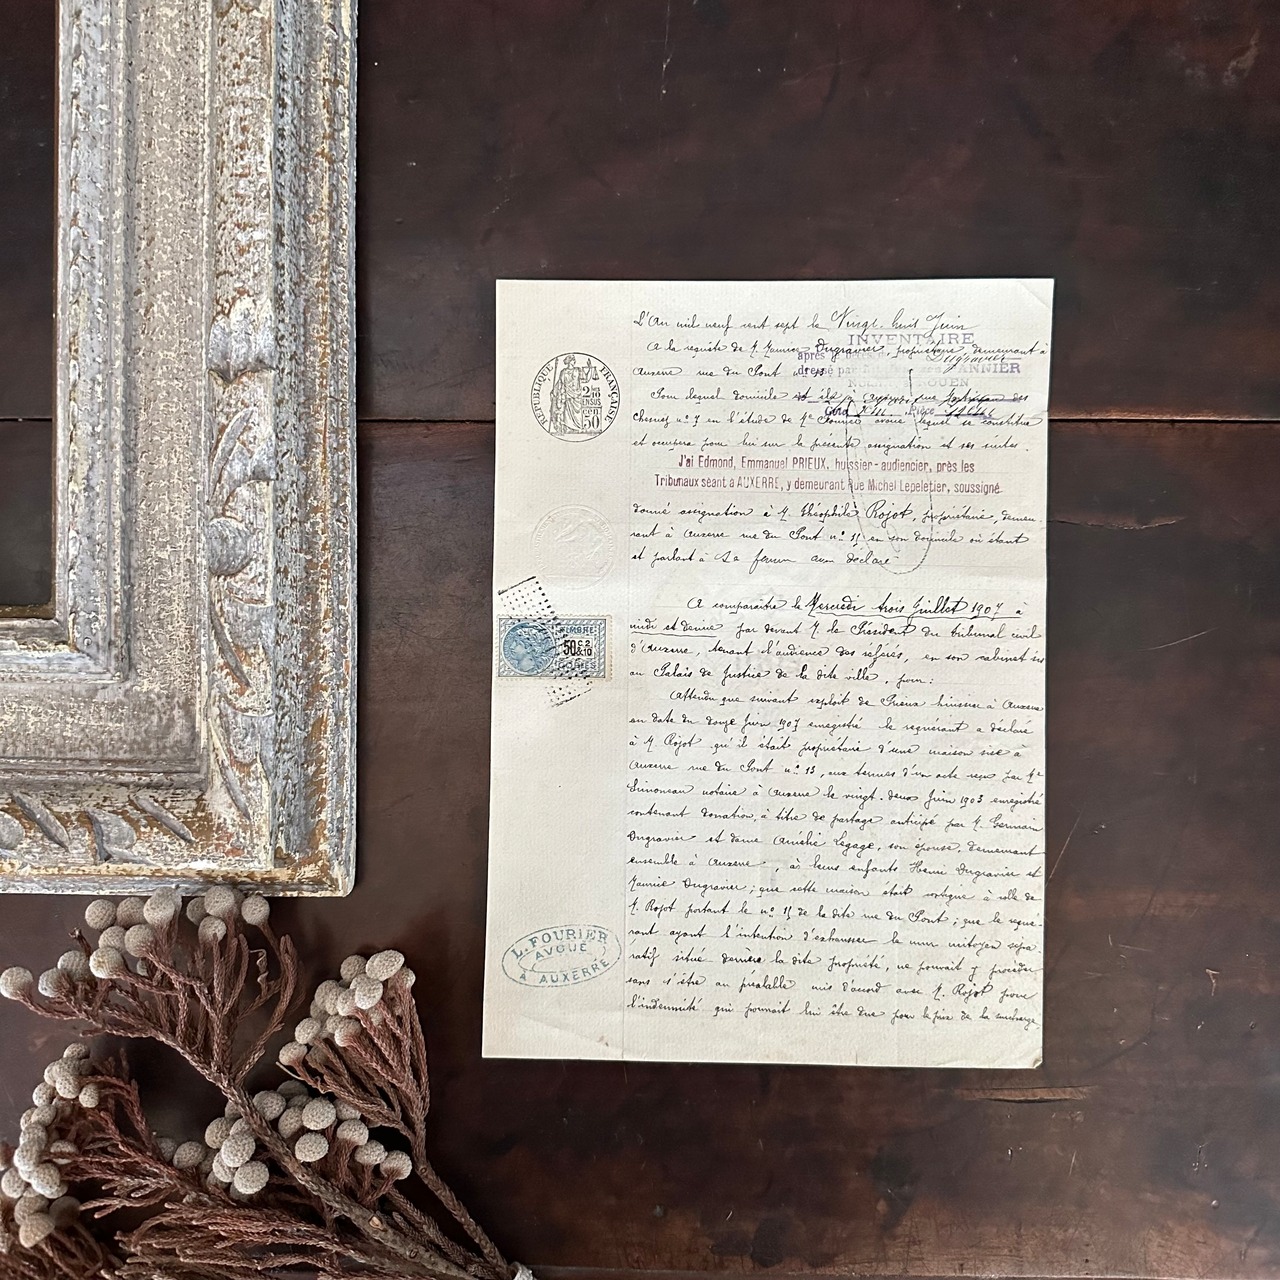 L'An mil neuf cent sept le Vingt huit Juin
A la requête de M. Maurice Dugravier, propriétaire, demeurant à
Auxerre rue du Pont n° 13
INVENTAIRE
après
dressé par ANNIER
ROUEN
Pour lequel domicile est élu à Auxerre rue des
Chesnez n° 7 en l'étude de Me Fourier avoué lequel se constitue
et occupera pour lui sur la présente assignation et ses suites.
J'ai Edmond, Emmanuel PRIEUX, huissier-audiencier, près les
Tribunaux séant à AUXERRE, y demeurant Rue Michel Lepeletier, soussigné
donné assignation à M. Théophile Rojot, propriétaire, demeu-
rant à Auxerre rue du Pont n° 11 en son domicile où étant
et parlant à sa femme ainsi déclaré
A comparaître le Mercredi trois Juillet 1907 à
midi et demie par devant M. le Président du tribunal civil
d'Auxerre, tenant l'audience des référés, en son cabinet sis
au Palais de Justice de la dite ville, pour:
Attendu que suivant exploit de Prieux huissier à Auxerre
en date du douze Juin 1907 enregistré le requérant a déclaré
à M. Rojot qu'il était propriétaire d'une maison sise à
Auxerre rue du Pont n° 13, aux termes d'un acte reçu par Me
Simoneau notaire à Auxerre le vingt-deux Juin 1903 enregistré
contenant donation à titre de partage anticipé par M. Germain
Dugravier et dame Amélie Legage, son épouse, demeurant
ensemble à Auxerre, à leurs enfants Henri Dugravier et
Maurice Dugravier; que cette maison était contigue à celle de
M. Rojot portant le n° 11 de la dite rue du Pont; que le requé-
rant ayant l'intention d'exhausser le mur mitoyen sépa
ratif situé derrière la dite propriété, ne pouvait y procéder
sans s'être au préalable mis d'accord avec M. Rojot pour
l'indemnité qui pourrait lui être due pour le prix de la surcharge
RÉPUBLIQUE FRANÇAISE
2/10
EN SUS
50 cen
TIMBRE
50 c 2/10
L. FOURIER
AVOUÉ
A AUXERRE